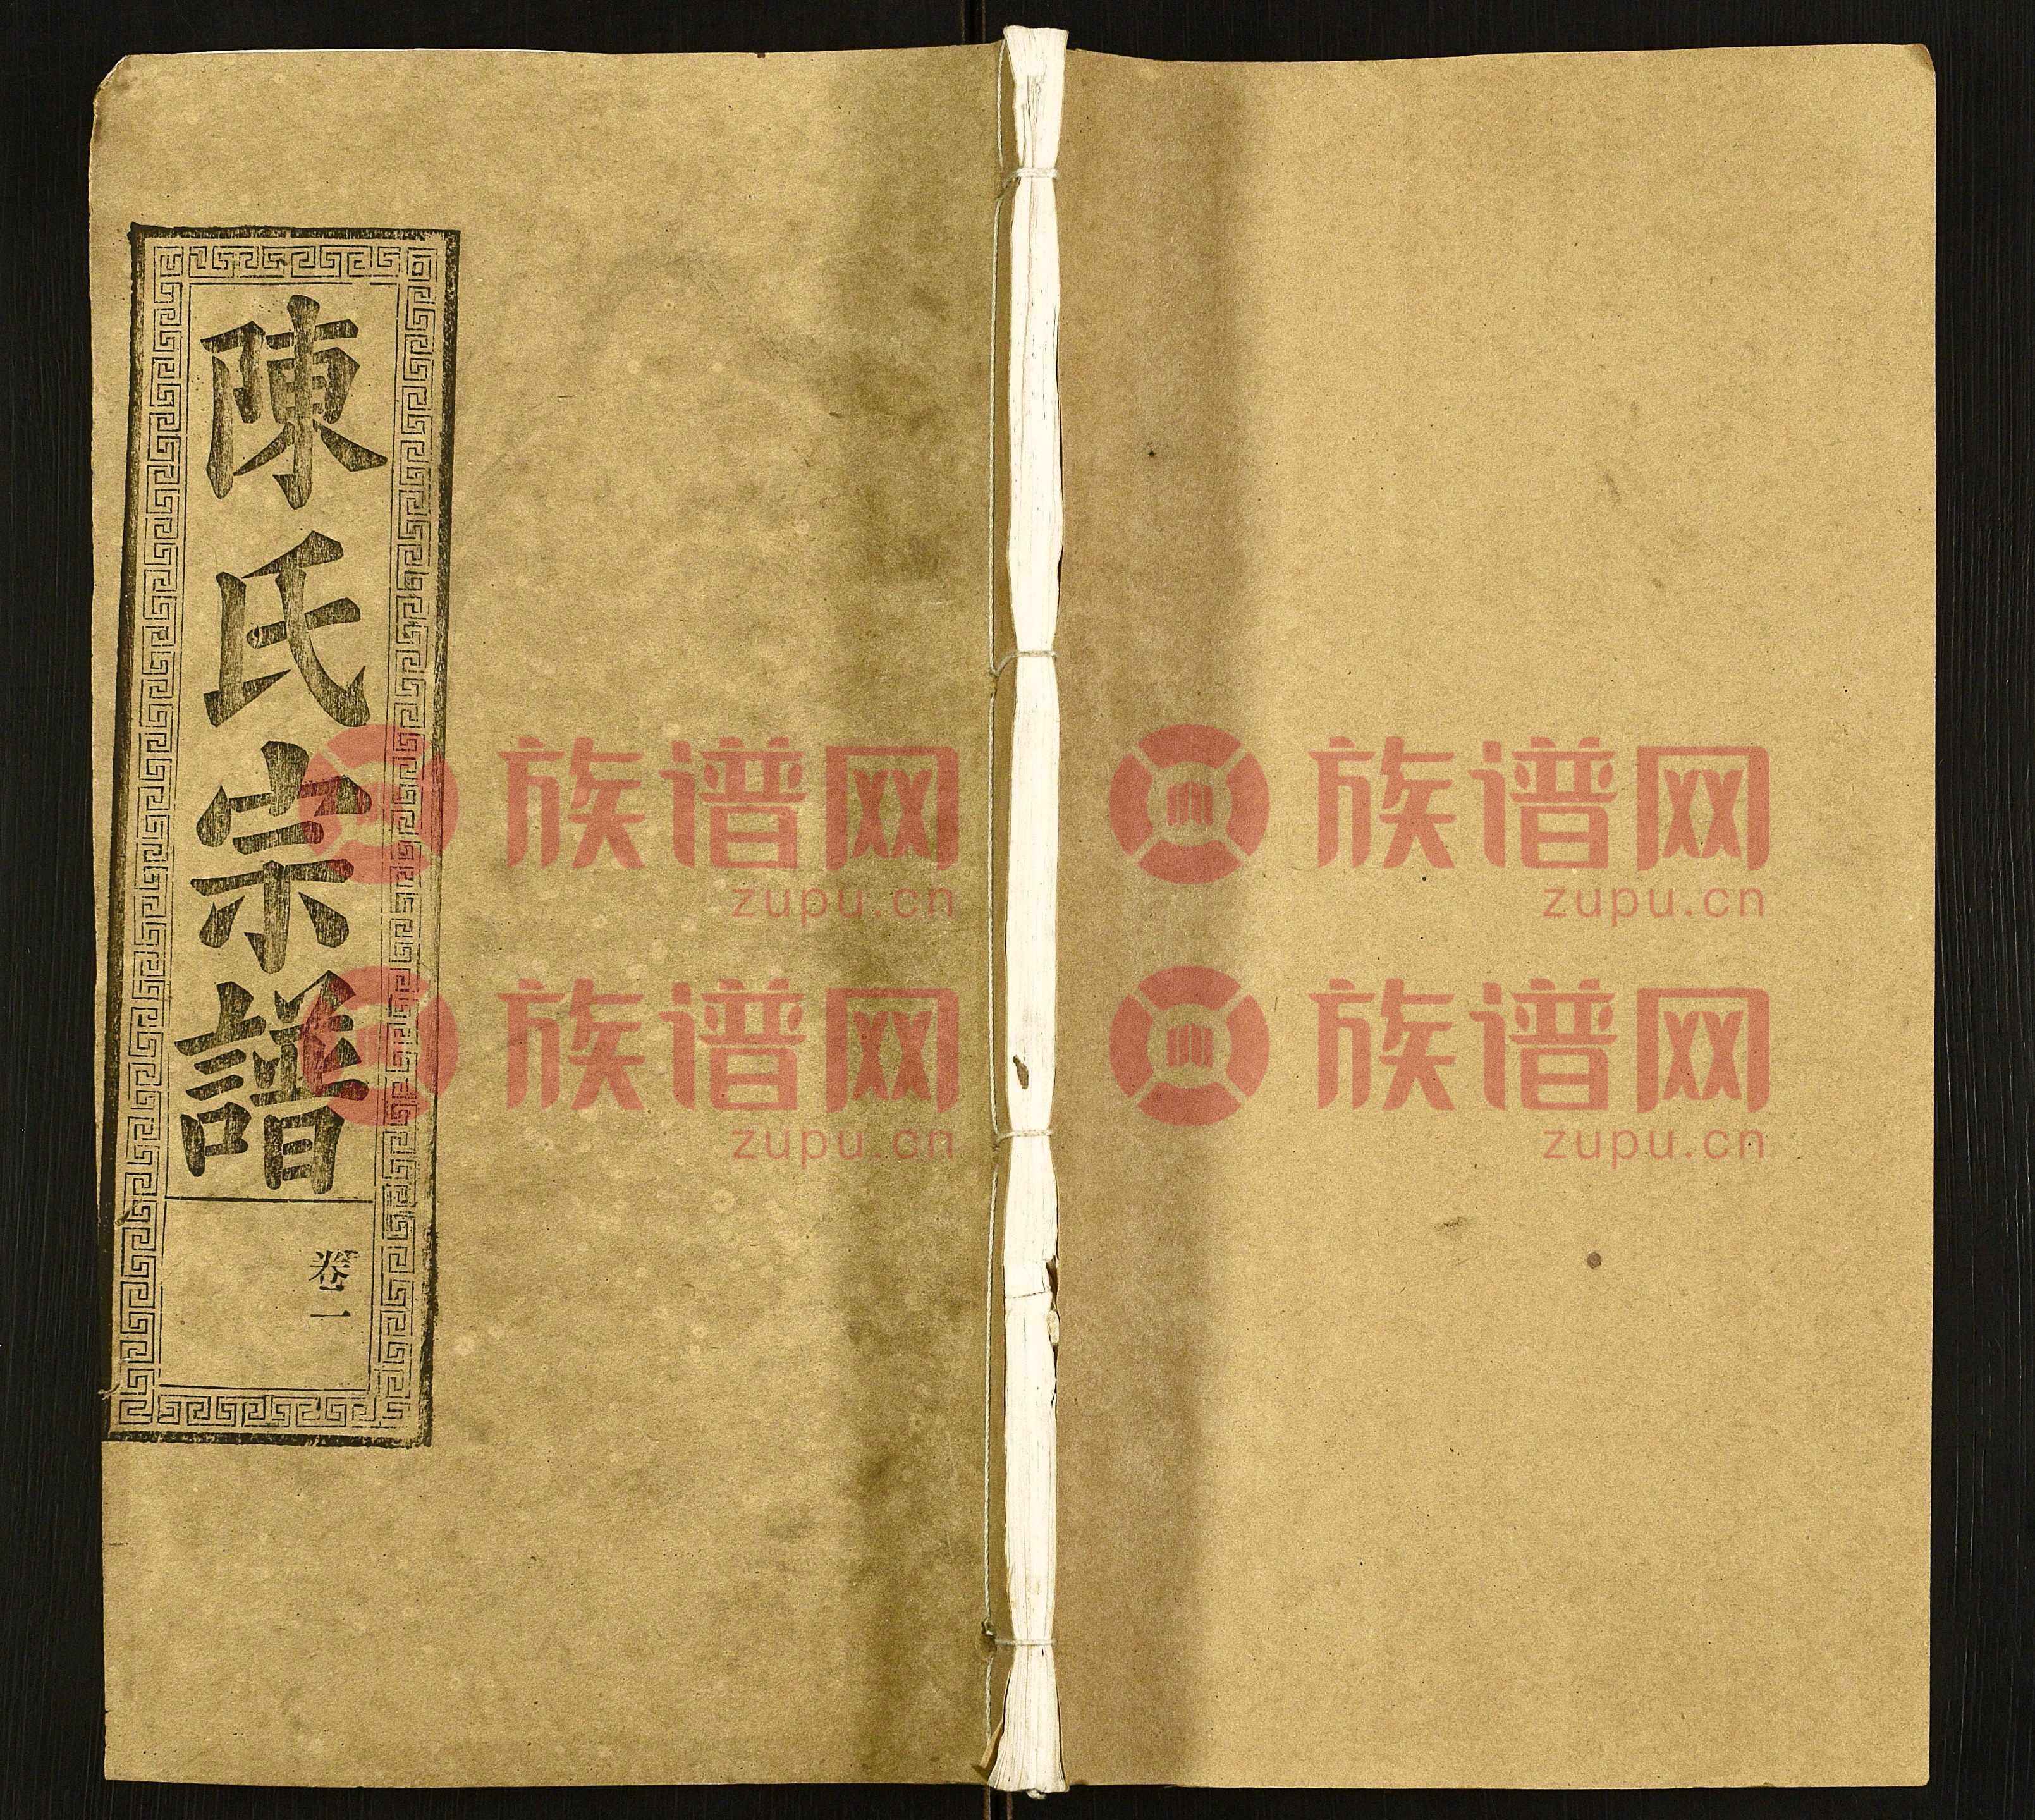 陳氏宗譜
卷一
族谱网 族谱网
zupu.cn zupu.cn
族谱网 族谱网
zupu.cn zupu.cn